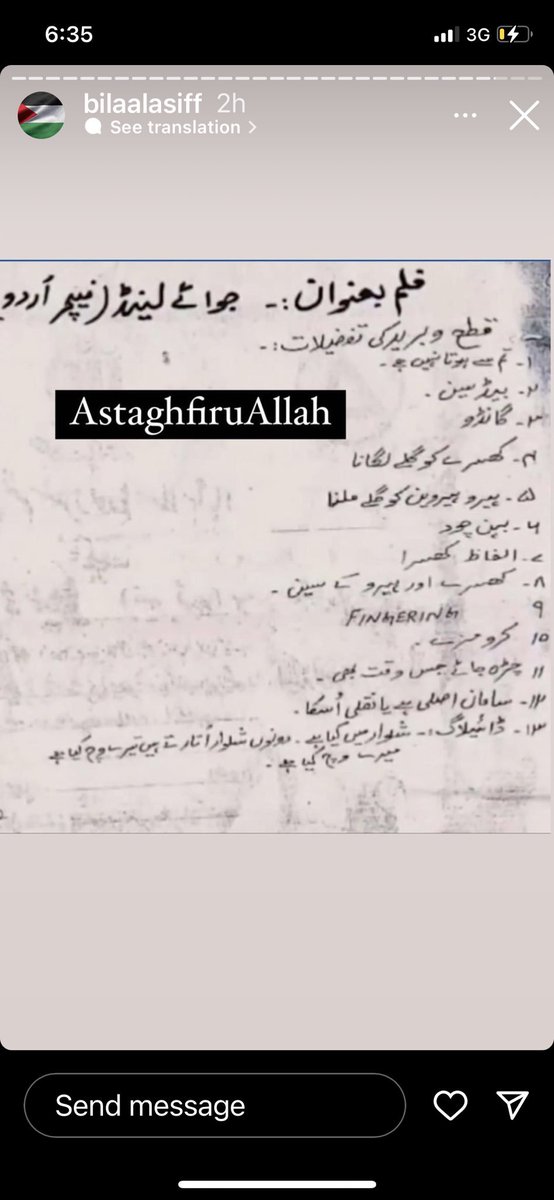 6:35
3G
bilaalasiff 2h
See translation >
فلم بعنوان :۔ جوائے لینڈ (فیچر اُردو
قطع و برید کی تفضیلات :۔
۱۔ تم سے ہوتا نہیں ہے۔
۲۔ بیڈ سین۔
۳۔ گانڈو
AstaghfiruAllah
۴۔ کھسرے کو گلے لگانا
۵۔ ہیرو ہیروین کو گلے ملنا
۶۔ بہن چود
۷۔ الفاظ کھسرا
۸۔ کھسرے اور ہیرو کے سین۔
۹ FINGERING
۱۰
۱۱ چڑھ جائے جس وقت بھی۔
۱۲۔ سامان اصلی ہے یا نقلی اُسکا۔
۱۳۔ ڈائیلاگ :۔ شلوار میں کیا ہے۔ دونوں شلوار اُتارتے ہیں تیرے وچ کیا ہے
میرے وچ کیا ہے۔
Send message